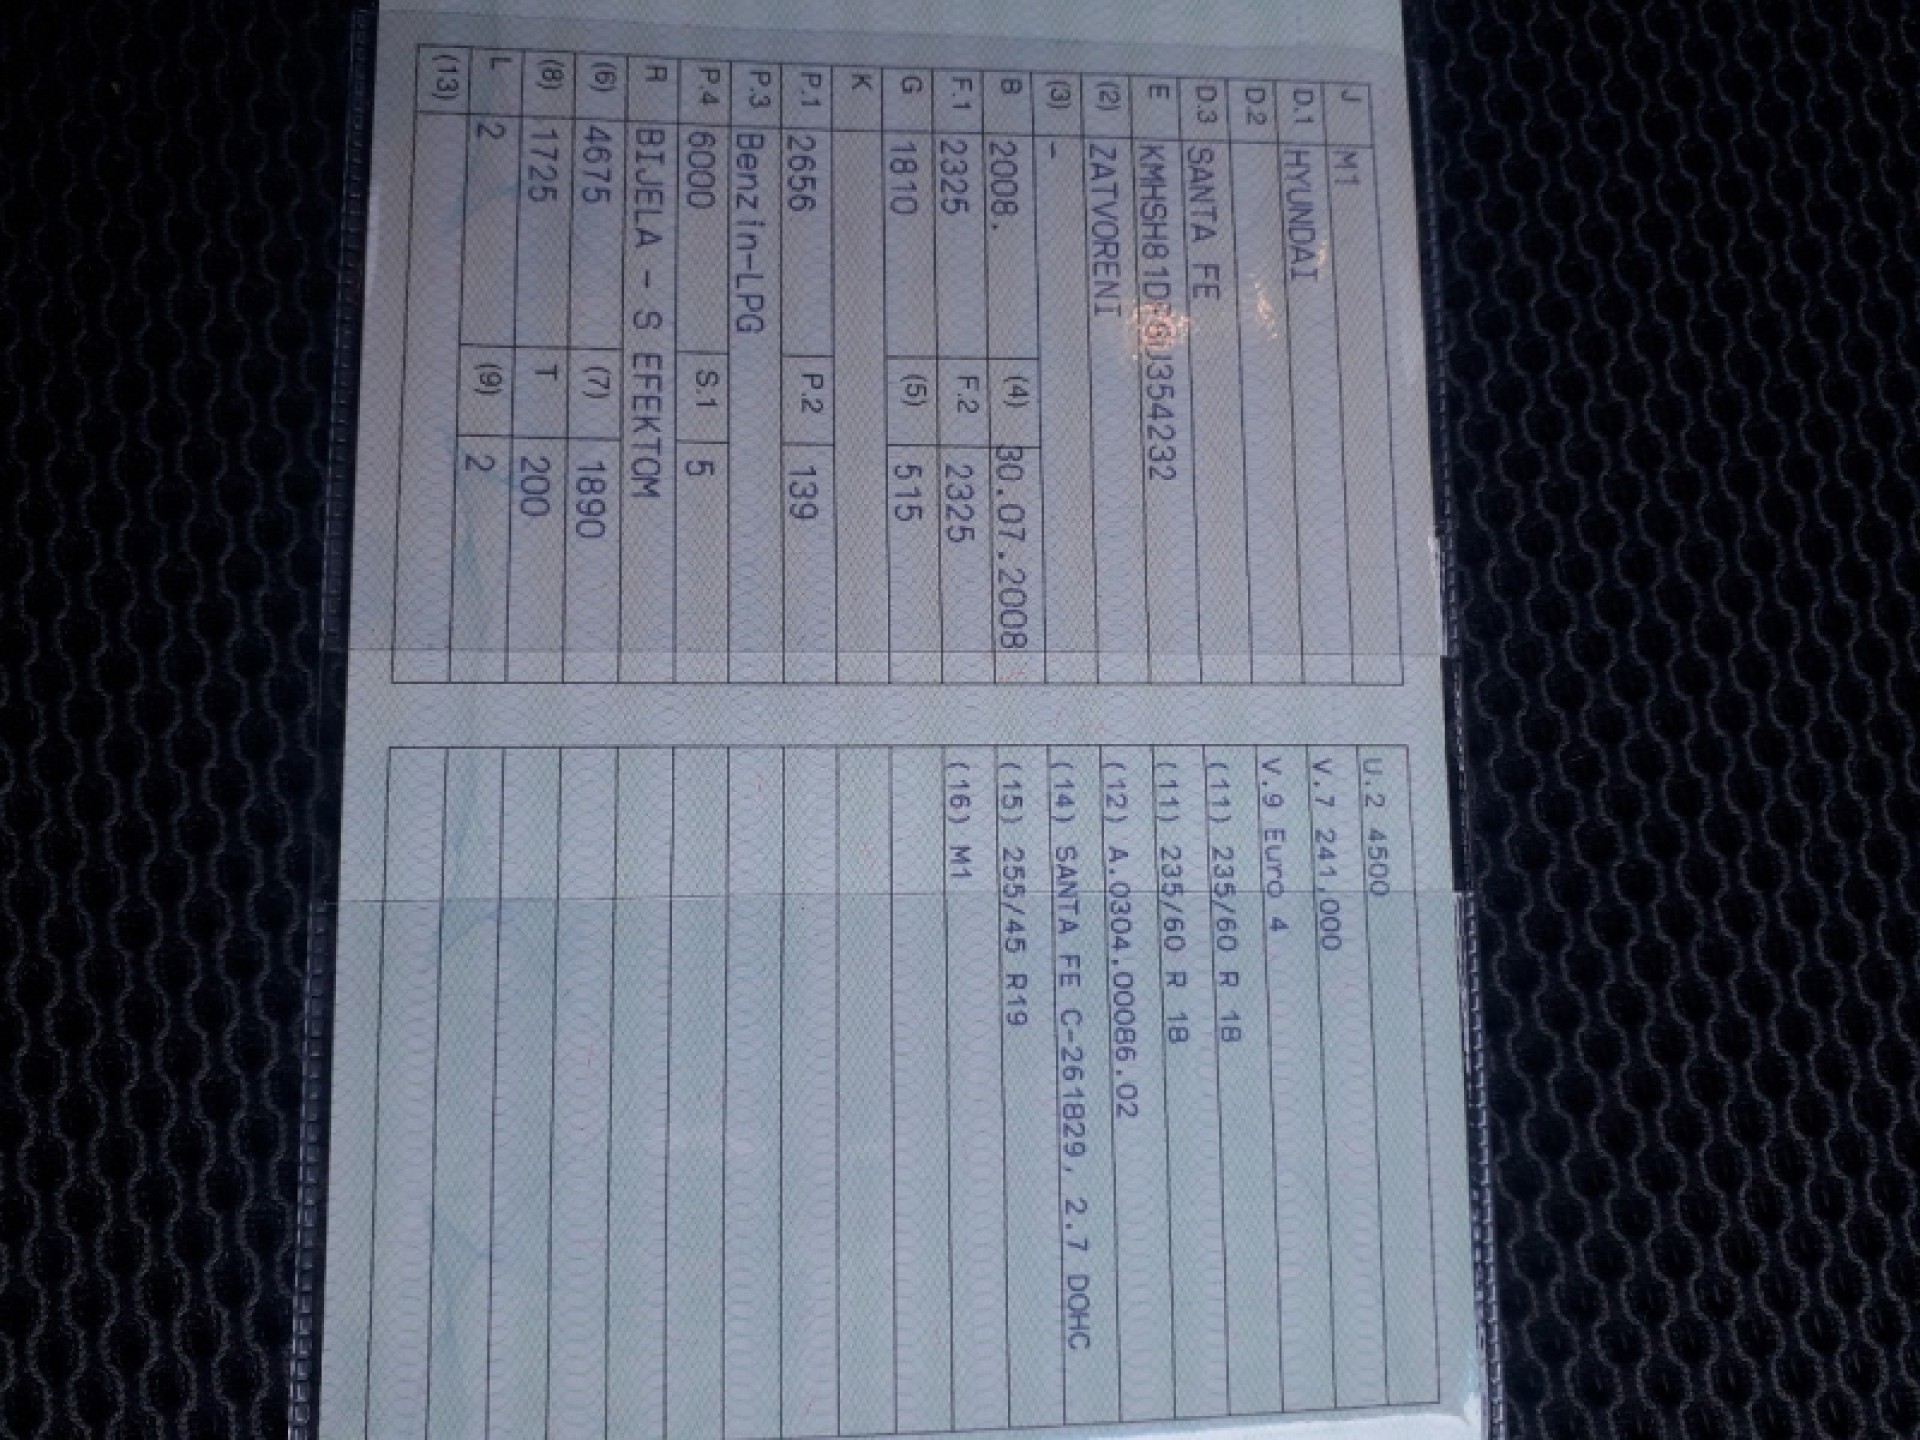 J M1
D.1 HYUNDAI
D.2
D.3 SANTA FE
E
(2) ZATVORENI
(3) -
B 2008. (4) 30.07.2008
F.1 2325 F.2 2325
G 1810 (5) 515
K
P.1 2656 P.2 139
P.3 Benzin-LPG
P.4 6000 S.1 5
R BIJELA - S EFEKTOM
(6) 4675 (7) 1890
(8) 1725 T 200
L 2 (9) 2
(13)
U.2 4500
V.7 241,000
V.9 Euro 4
(11) 235/60 R 18
(11) 235/60 R 18
(12) A.0304.00086.02
(14) SANTA FE C-261829, 2.7 DOHC
(15) 255/45 R19
(16) M1